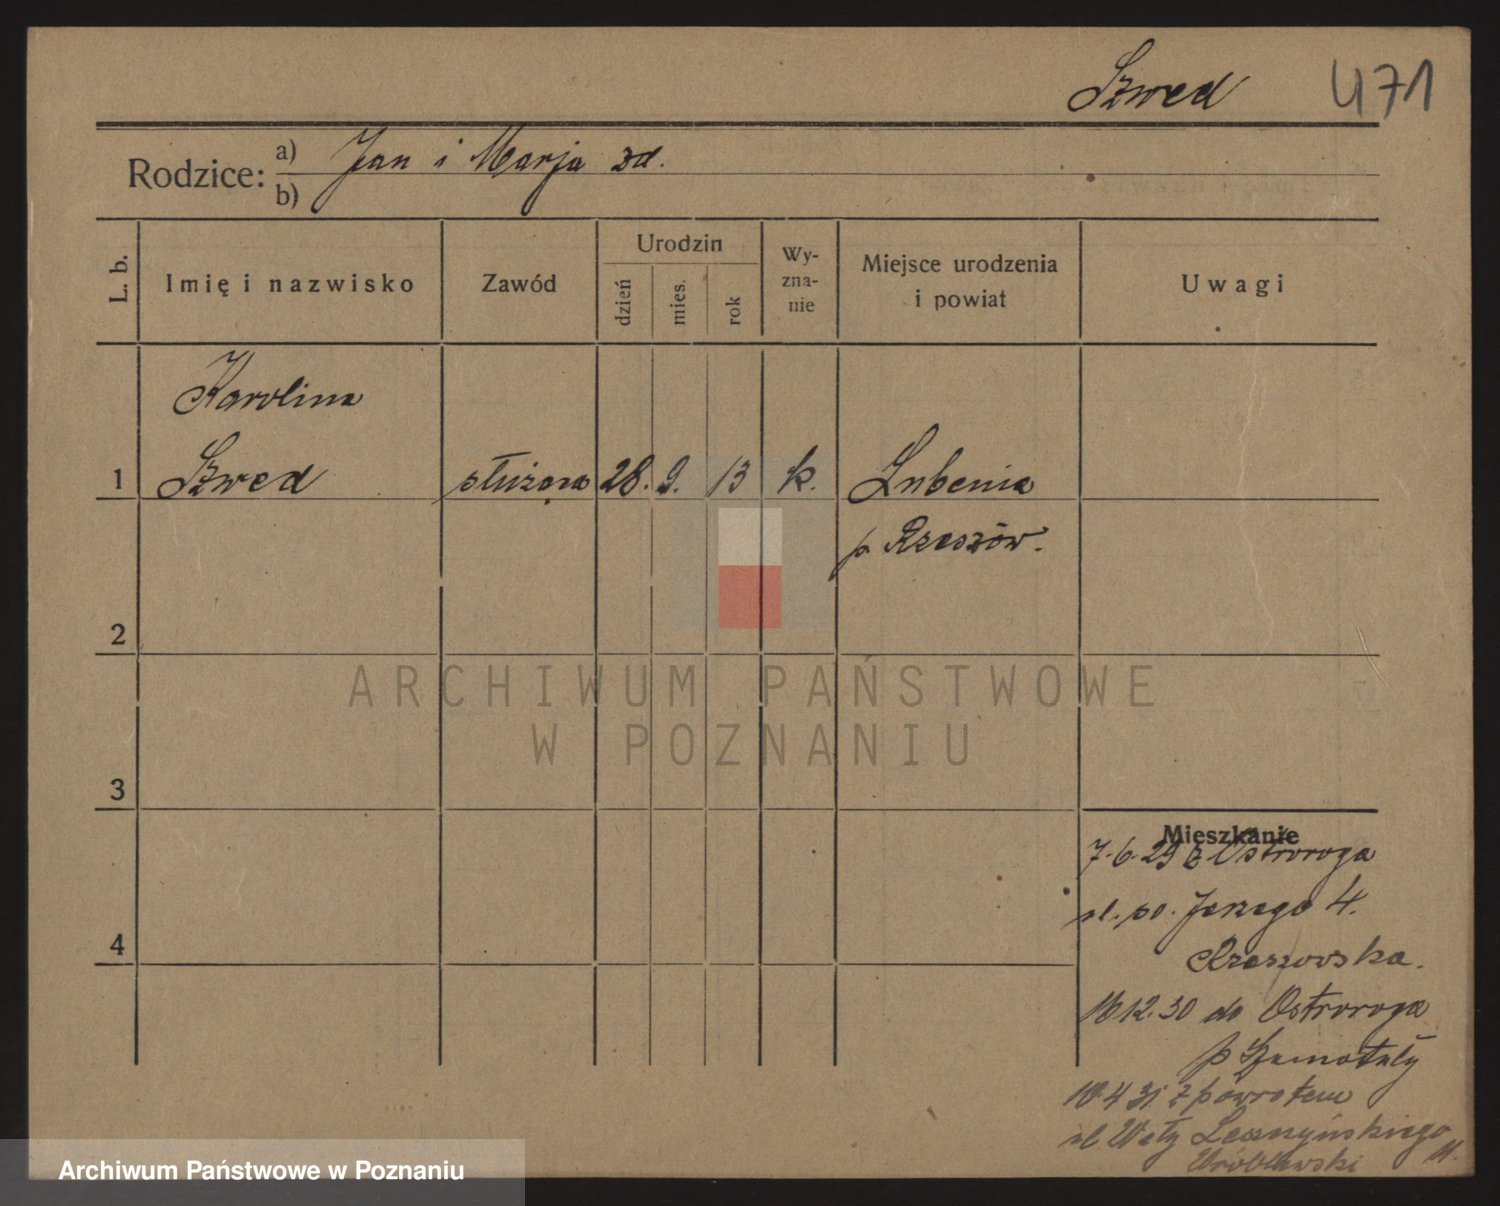 Szwed 471
Rodzice: a) Jan i Marja zd.
b)
L. b. Imię i nazwisko Zawód Urodzin dzień mies. rok Wy-zna-nie Miejsce urodzenia i powiat Uwagi
Karolina
1 Szwed służąca 28. 9. 13 k. Lubenia
p. Rzeszów.
2
ARCHIWUM PAŃSTWOWE
W POZNANIU
3
Mieszkanie
7.6.29 z Ostroroga
ul. po. Jerzego 4.
4
Rzeszowska.
16 12.30 do Ostroroga
p Szamotuły
10.4 31 z powrotem
ul. Wały Leszczyńskiego
Wróblewski 11.
Archiwum Państwowe w Poznaniu